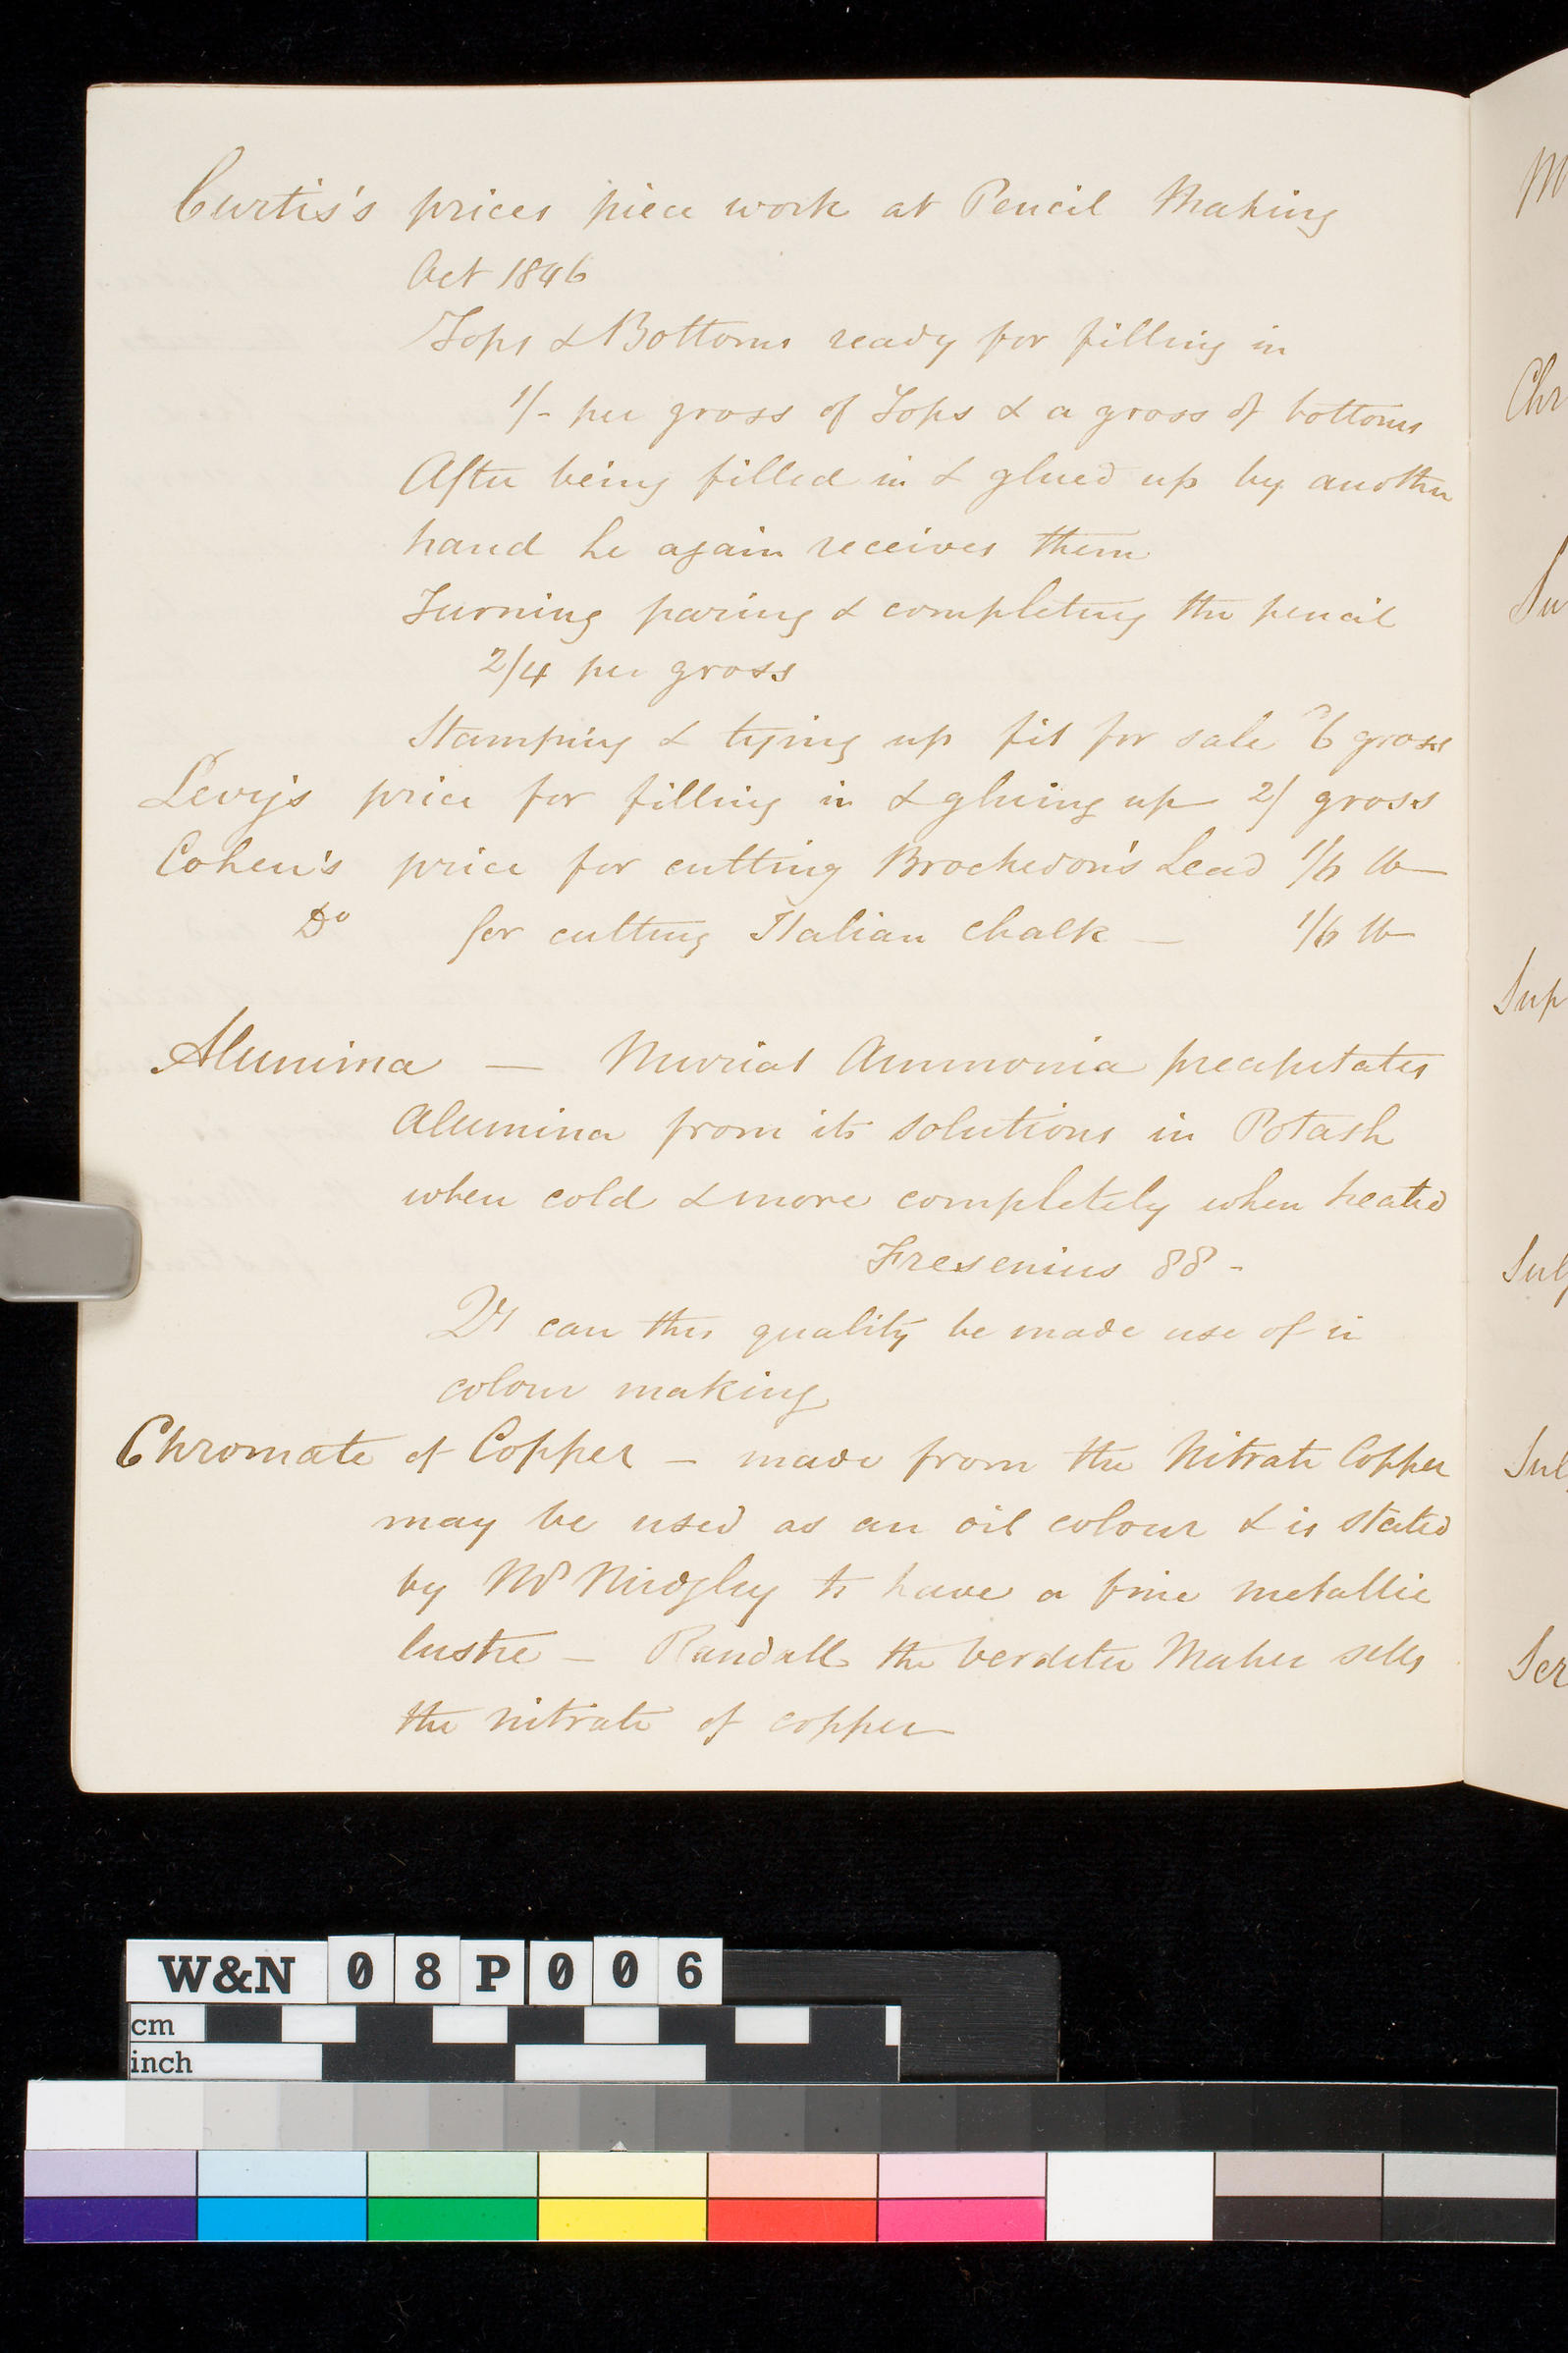 Curtis's prices piece work at Pencil Making
Oct 1846
Tops & Bottoms ready for filling in
1/- per gross of Tops & a gross of bottoms
After being filled in & glued up by another
hand he again receives them
Turning paring & completing the pencil
2/4 per gross
Stamping & tying up fit for sale 6 gross
Levy's price for filling in & gluing up 2/ gross
Cohen's price for cutting Brockedon's Lead 1/6 lb
Do for cutting Italian Chalk — 1/6 lb
Alumina — Muriat Ammonia precipitates
Alumina from its solutions in Potash
when cold & more completely when heated
Fresenius 88 -
Qy can this quality be made use of in
colour making
Chromate of Copper — made from the Nitrate Copper
may be used as an oil colour & is stated
by Mr Midgley to have a fine metallic
lustre — Randall the verditer Maker sells
the nitrate of copper
M
Chr
Su
Sup
Sul
Sul
Scr
W&N 08P006
cm
inch